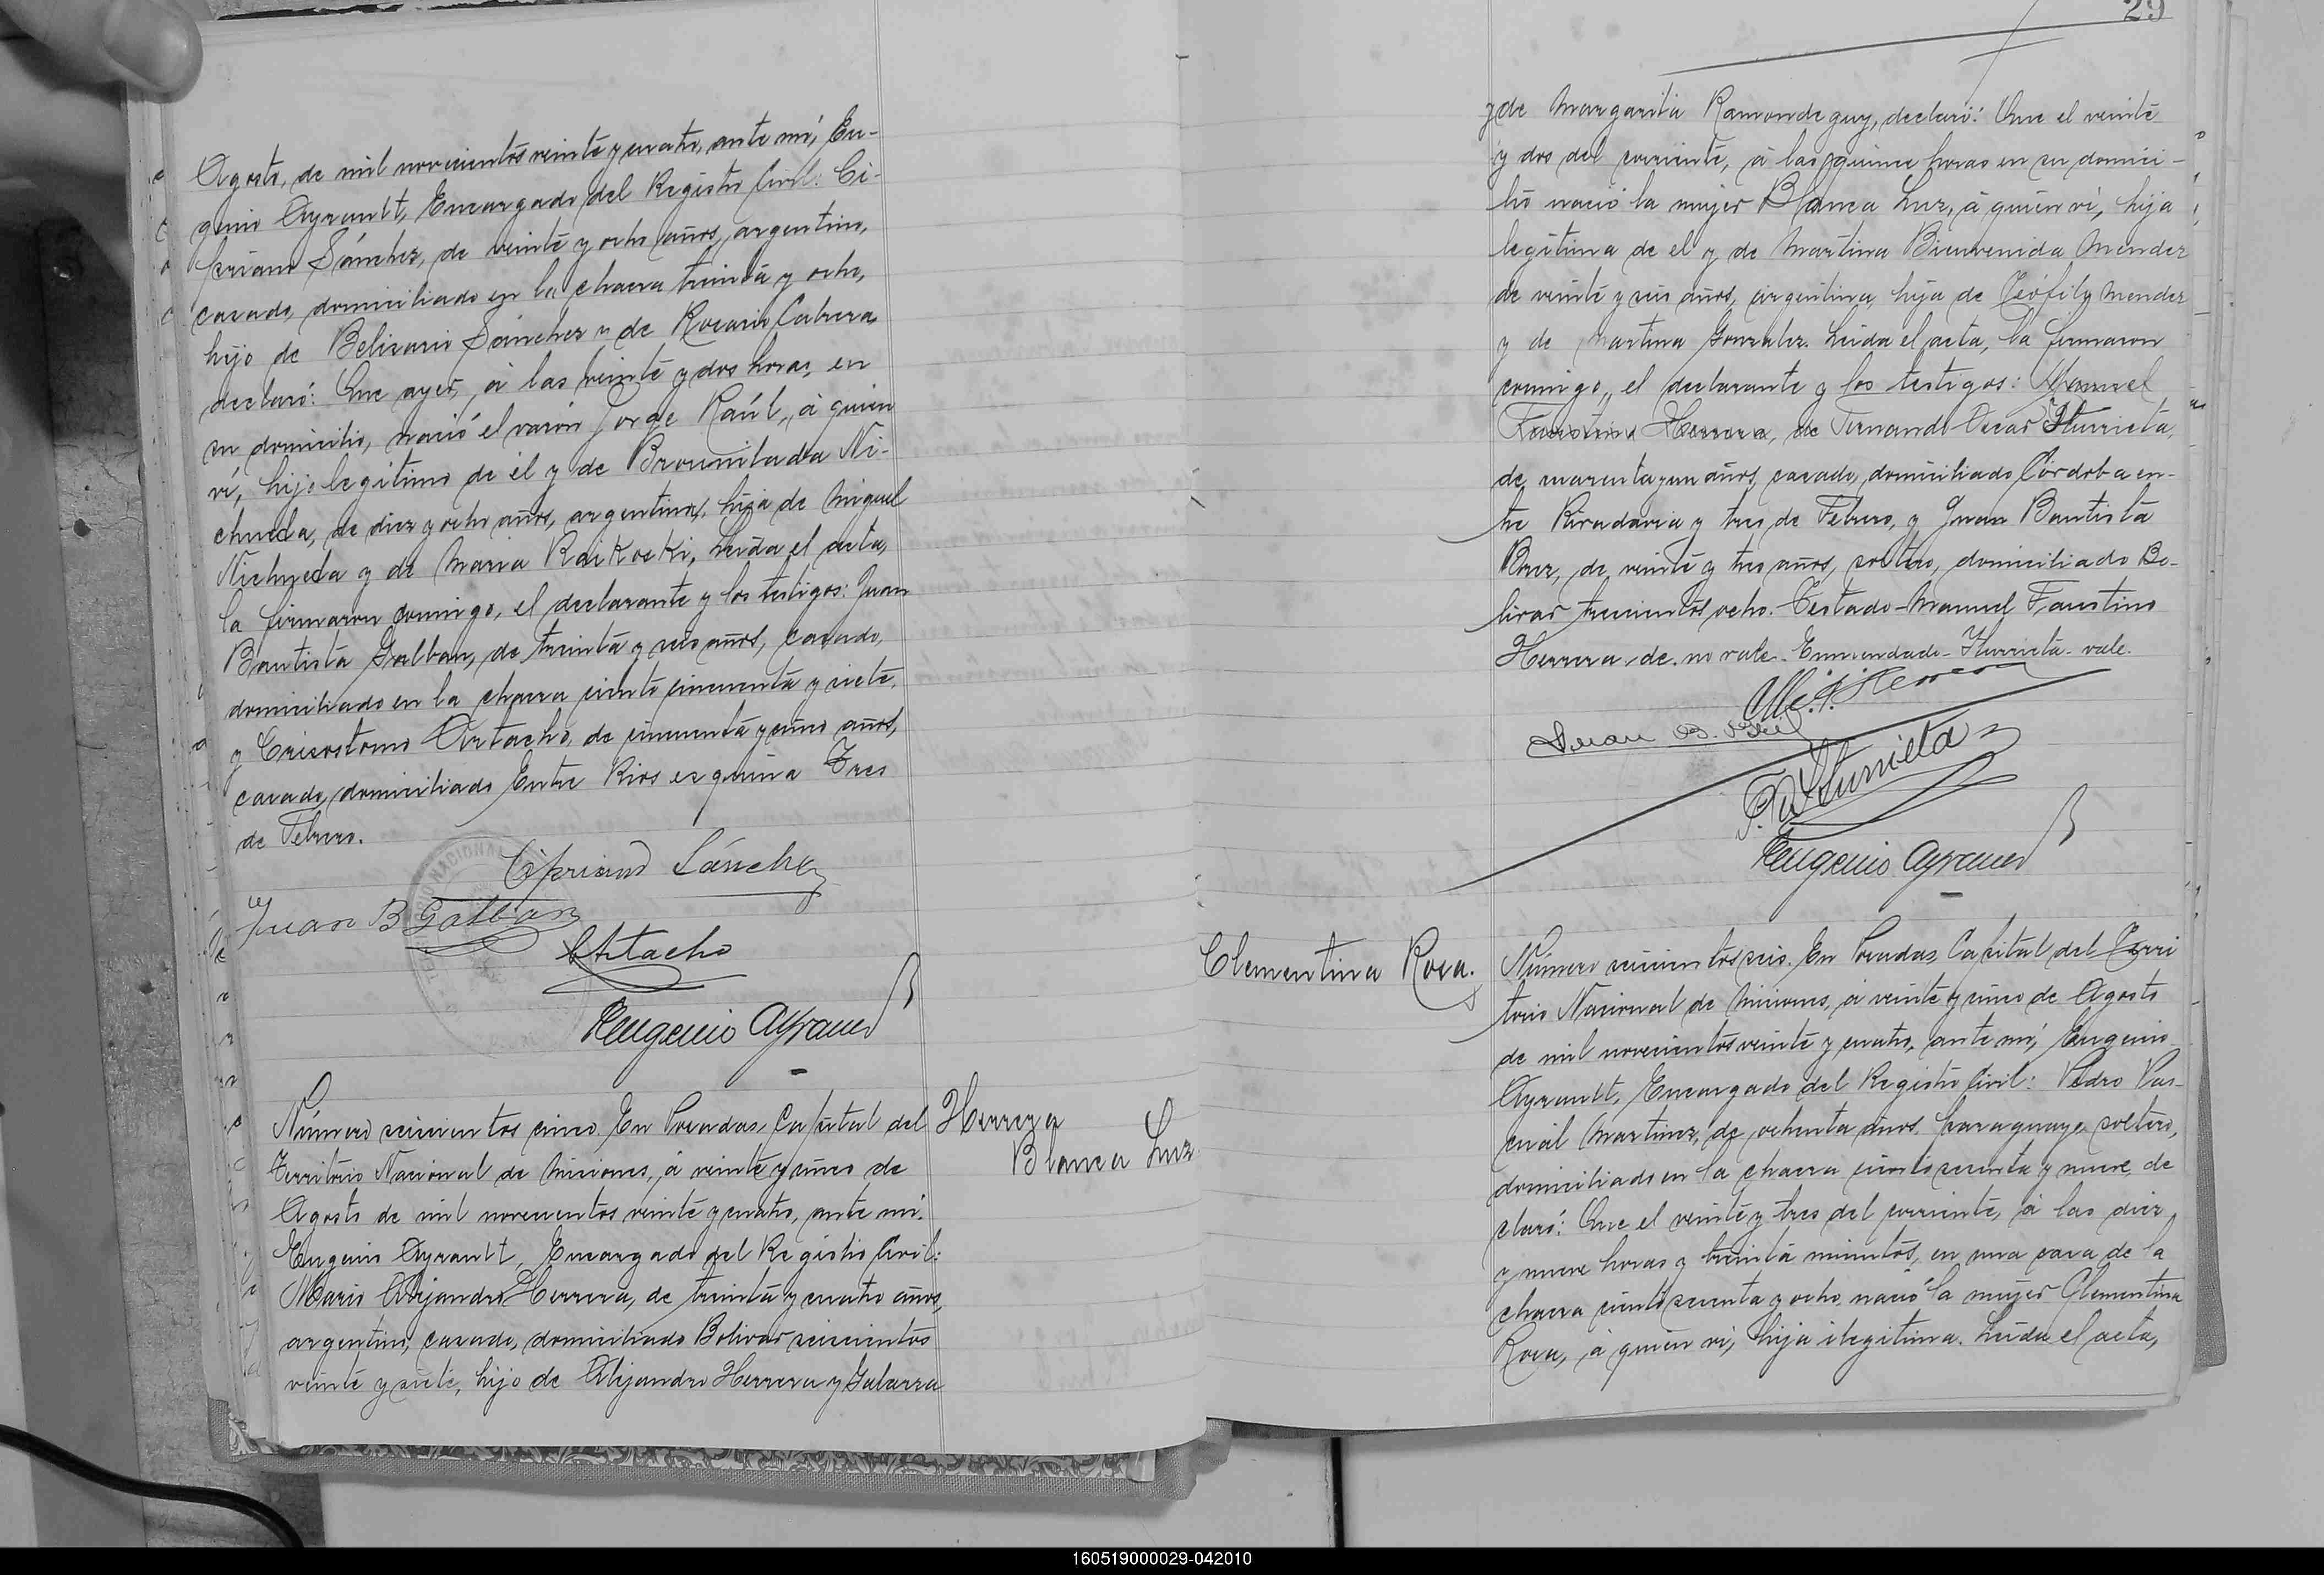 Agosto, de mil novecientos veinte y cuatro, ante mí, Eu-
genio Ayrault, Encargado del Registro Civil: Ci-
priano Sánchez, de veinte y ocho años, argentino,
casado, domiciliado en la chacra treinta y ocho,
hijo de Belisario Sánchez y de Rosario Cabrera,
declaró: Que ayer, á las veinte y dos horas, en
su domicilio, nació el varón Jorge Raúl, á quien
ví, hijo legítimo de él y de Bronislada Ni-
chueda, de diez y ocho años, argentina, hija de Miguel
Nichueda y de Maria Raikoski. Leída el acta,
la firmaron conmigo, el declarante y los testigos: Juan
Bautista Galban, de treinta y seis años, casado,
domiciliado en la chacra ciento cincuenta y siete,
y Crisostomo Artacho, de cincuenta y cinco años,
casado, domiciliado Entre Rios esquina Tres
de Febrero.
Cipriano Sánchez
Juan B Galban
CArtacho
Eugenio Ayrault
Número seiscientos cinco. En Posadas, Capital del
Territorio Nacional de Misiones, á veinte y cinco de
Agosto de mil novecientos veinte y cuatro, ante mí,
Eugenio Ayrault, Encargado del Registro Civil:
Mario Alejandro Herrera, de treinta y cuatro años,
argentino, casado, domiciliado Bolivar seiscientos
veinte y siete, hijo de Alejandro Herrera y Galarza
Herrera
Blanca Luz
29
y de Margarita Ramondeguy, declaró: Que el veinte
y dos del corriente, á las quince horas en su domici-
lio nació la mujer Blanca Luz, á quien ví, hija
legítima de el y de Martina Bienvenida Mendez
de veinte y seis años, argentina, hija de Teófilo Mendez
y de Martina Gonzalez. Leida el acta, la firmaron
conmigo, el declarante y los testigos: Manuel
Faustino Herrera, de Fernando Oscar Iturrieta,
de cuarenta y un años, casado, domiciliado Córdoba en-
tre Rivadavia y tres de Febrero, y Juan Bautista
de veinte y tres años, soltero, domiciliado Bo-
livar trescientos ocho. Testado-Manuel Faustino
Herrera, de. no vale. Enmendado-Iturrieta-vale.
M. A. Herrera
Juan B.
F. O. Iturrieta
Eugenio Ayrault
Clementina Rosa.
Número seiscientos seis. En Posadas, Capital del Terri
torio Nacional de Misiones, á veinte y cinco de Agosto
de mil novecientos veinte y cuatro, ante mí, Eugenio
Ayrault, Encargado del Registro Civil: Pedro Pas-
cual Martinez, de ochenta años, paraguayo, soltero,
domiciliado en la chacra ciento sesenta y nueve, de
claró: Que el veinte y tres del corriente, á las diez
y nueve horas y treinta minutos, en una casa de la
chacra ciento sesenta y ocho, nació la mujer Clementina
Rosa, á quien ví, hija ilegítima. Leída el acta,
160519000029-042010